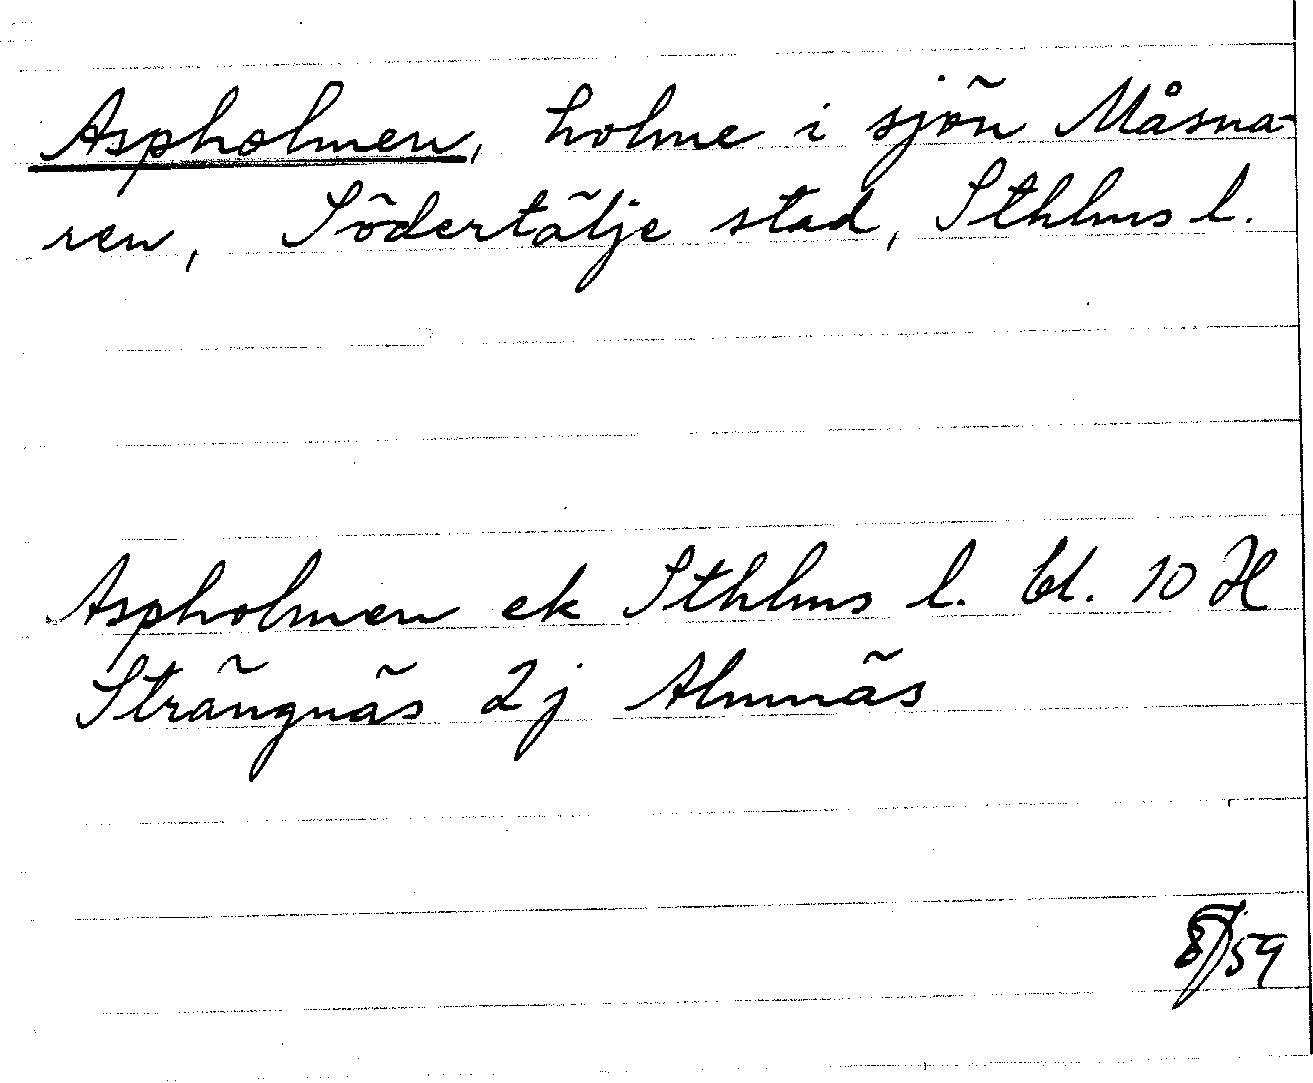 Aspholmen, holme i sjön Måsna-
ren, Södertälje stad, Sthlms l.
Aspholmen ek Sthlms l. bl. 10 H
Strängnäs 2j Almnäs